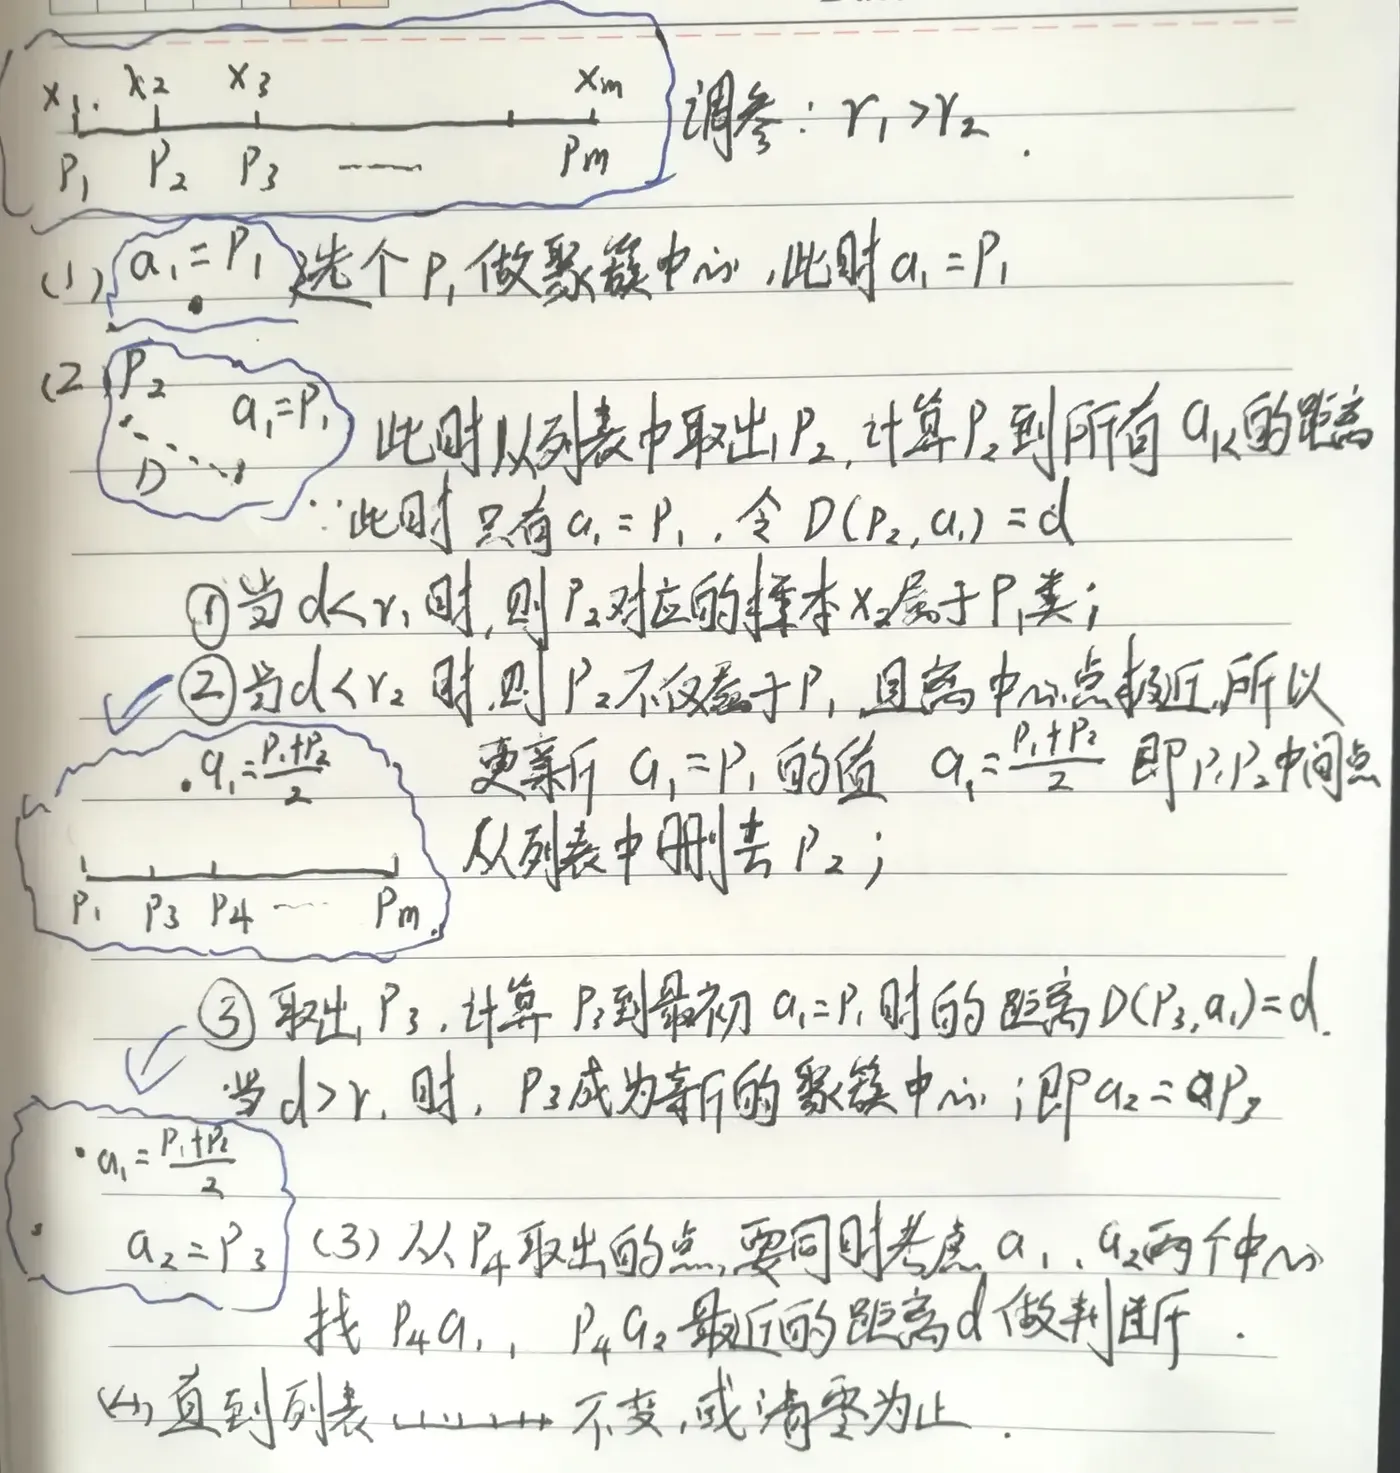 x₁. x₂ x₃ xₘ
P₁ P₂ P₃ …… Pₘ
调参：r₁>r₂.
(1) a₁=P₁ 选个P₁做聚簇中心，此时a₁=P₁
(2) P₂
a₁=P₁
D
此时从列表中取出P₂，计算P₂到所有aₖ的距离
∵此时只有a₁=P₁，令D(P₂,a₁)=d
①当d<r₁时，则P₂对应的样本x₂属于P₁类；
②当d<r₂时，则P₂不仅属于P₁且离中心点极近，所以
更新a₁=P₁的值 a₁=(P₁+P₂)/2 即P₁P₂中间点
从列表中删去P₂；
a₁=(P₁+P₂)/2
P₁ P₃ P₄ …… Pₘ
③取出P₃，计算P₃到最初a₁=P₁时的距离D(P₃,a₁)=d.
当d>r₁时，P₃成为新的聚簇中心；即a₂=P₃
a₁=(P₁+P₂)/2
a₂=P₃
(3)从P₄取出的点，要同时考虑a₁、a₂两个中心
找P₄a₁，P₄a₂最近的距离d做判断.
(4)直到列表不变，或清零为止.